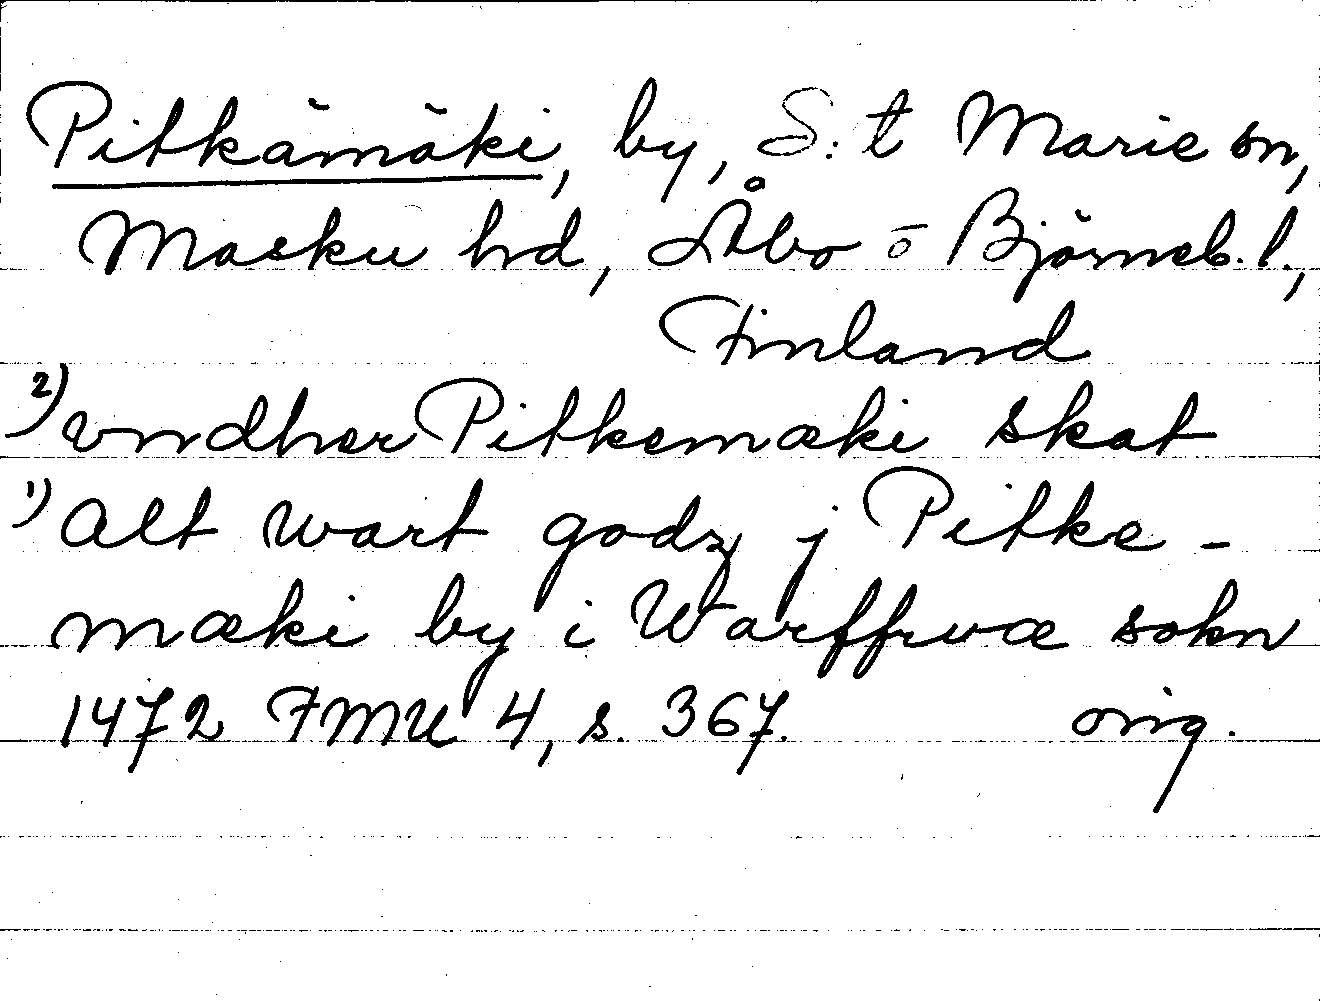 Pitkämäki, by, S:t Marie sn,
Masku hd, Åbo o Björneb. l.,
Finland
2) vndher Pitkemæki skat
1) alt wart godz j Pitke-
mæki by i Warffrwæ sokn
1472 FMU 4, s. 367. orig.